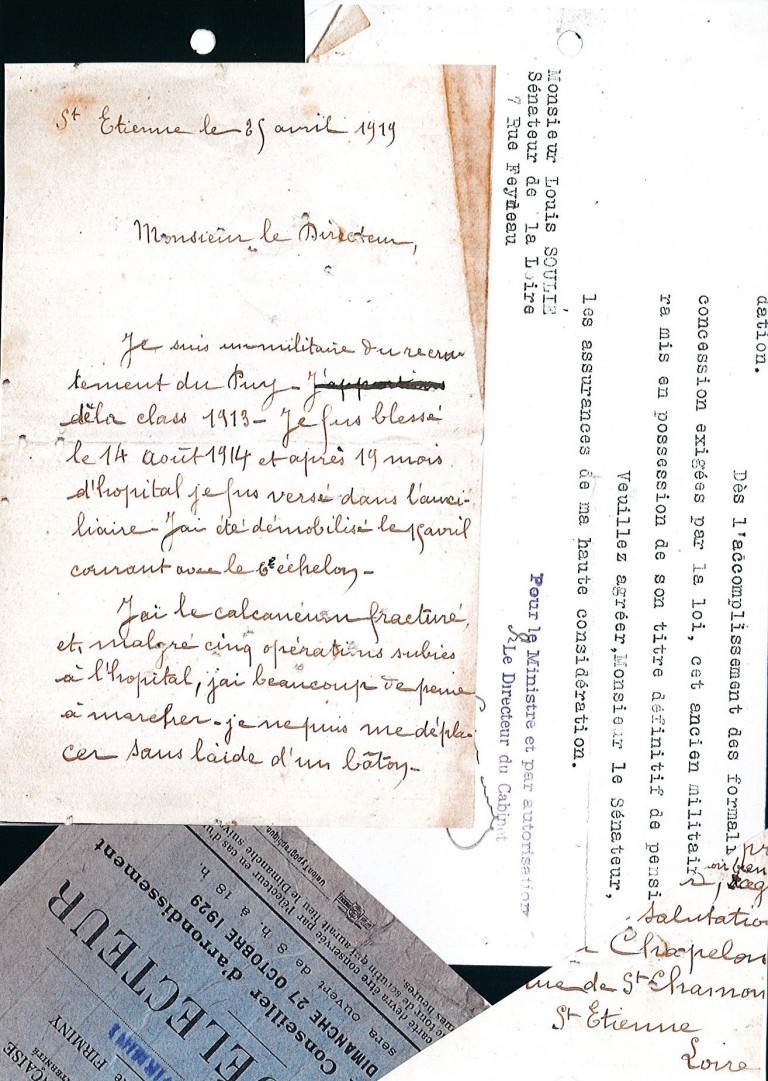 St Etienne le 25 avril 1919
Monsieur le Directeur,
Je suis un militaire du recru-
tement du Puy - J'appartiens
de la class 1913 - Je fus blessé
le 14 août 1914 et après 19 mois
d'hopital je fus versé dans l'auxi-
liaire - J'ai été démobilisé le 15 avril
courant avec le 6e échelon -
J'ai le calcanéum fracturé,
et, malgré cinq opérations subies
à l'hopital, j'ai beaucoup de peine
à marcher - je ne puis me dépla-
cer sans l'aide d'un bâton -
dation.
Dès l'accomplissement des formali
concession exigées par la loi, cet ancien militair
ra mis en possession de son titre définitif de pensi
Veuillez agréer, Monsieur le Sénateur,
les assurances de ma haute considération.
Monsieur Louis SOULIÉ
Sénateur de la Loire
7 Rue Feydeau
Pour le Ministre et par autorisation
Le Directeur du Cabinet
salutatio
Chapelon
rue de St Chamon
St Etienne
Loire
carte devra être conservée par l'électeur en cas d'u
le tour de scrutin qui aurait lieu le Dimanche suiv
mes heures.
Union Typographique
sera ouvert de 8 h. à 18 h.
DIMANCHE 27 OCTOBRE 1929
Conseiller d'arrondissement
D'ELECTEUR
FIRMINY
FIRMINY
ÇAISE